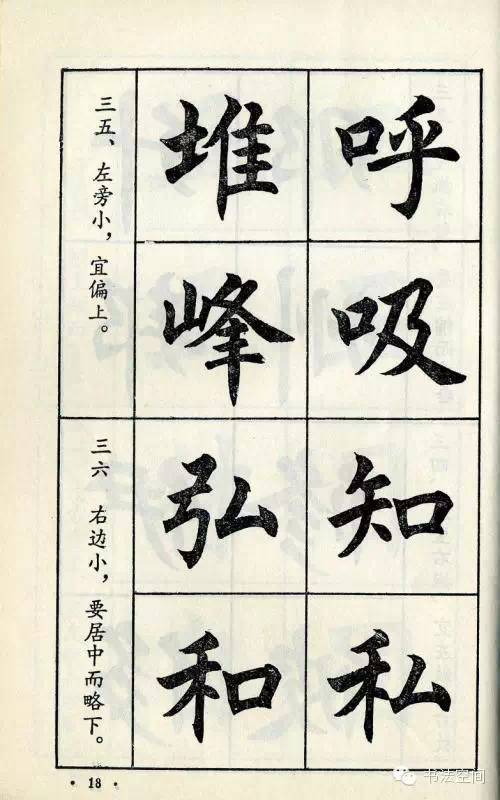 呼吸知私
堆峰弘和
三五、左旁小，宜偏上。
三六 右边小，要居中而略下。
·18·
书法空间